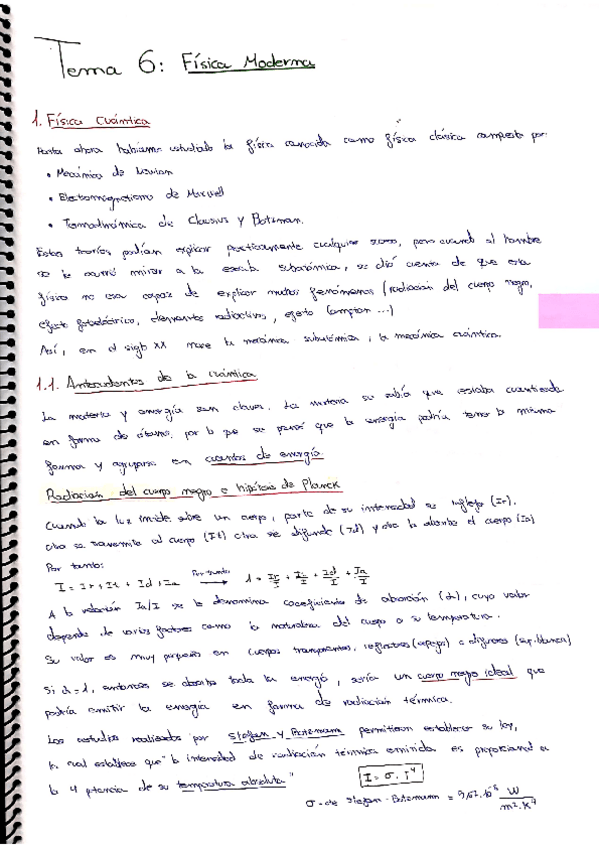 Tema 6: Física Moderna
1. Física Cuántica
Hasta ahora habíamos estudiado la física conocida como física clásica compuesta por:
• Mecánica de Newton
• Electromagnetismo de Maxwell
• Termodinámica de Clausius y Boltzman.
Estas teorías podían explicar practicamente cualquier , pero cuando al hombre
se le ocurrió mirar a la escala subatómica, se dió cuenta de que esta
física no era capaz de explicar muchos fenómenos (radiación del cuerpo negro,
efecto fotoeléctrico, elementos radiactivos, efecto Compton ...)
Así, en el siglo XX nace la mecánica subatómica, la mecánica cuántica.
1.1. Antecedentes de la cuántica
La materia y energía son claves. La materia se sabía que estaba cuantizada
en forma de átomos, por lo que se pensó que la energía podría tener la misma
forma y agruparse en cuantos de energía.
Radiación del cuerpo negro e hipótesis de Planck
Cuando la luz incide sobre un cuerpo, parte de su intensidad se refleja (Ir),
otra se transmite al cuerpo (It) otra se difunde (Id) y otra la absorbe el cuerpo (Ia)
Por tanto:
I = Ir + It + Id + Ia Por tanto → 1 = Ir/I + It/I + Id/I + Ia/I
A la relación Ia/I se la denomina coeficiente de absorción (α), cuyo valor
depende de varios factores como la naturaleza del cuerpo o su temperatura.
Su valor es muy pequeño en cuerpos transparentes, reflectores (espejos) o difusores (sup. blancas)
Si α=1, entonces se absorbe toda la energía, sería un cuerpo negro ideal que
podría emitir la energía en forma de radiación térmica.
Los estudios realizados por Stefan y Boltzmann permitieron establecer su ley,
la cual establece que "la intensidad de radiación térmica emitida es proporcional a
la 4 potencia de su temperatura absoluta" I = σ · T⁴
σ = cte Stefan-Boltzmann = W/m²·K⁴